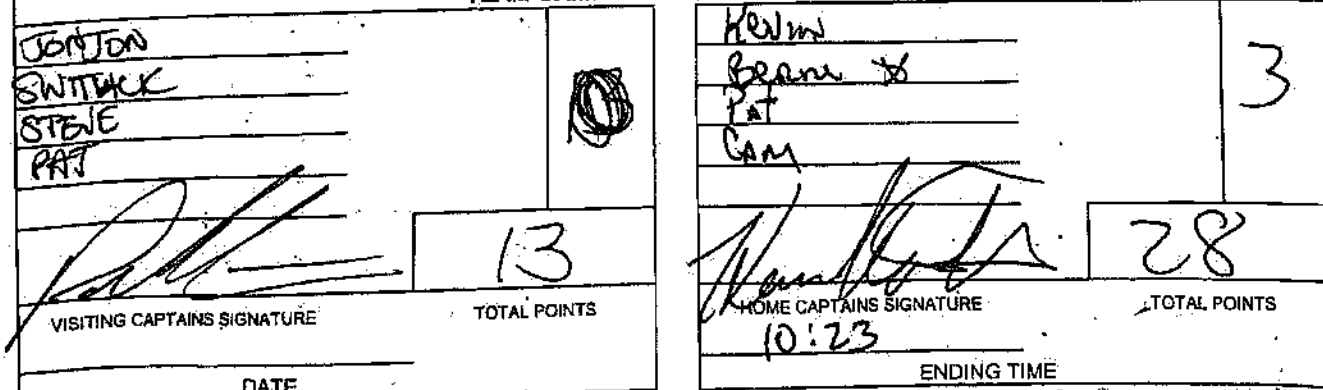 JONJON
SWITTHCK
STEVE
PAT
0
13
VISITING CAPTAINS SIGNATURE
TOTAL POINTS
DATE
Kevin
Pat
CAM
3
28
HOME CAPTAINS SIGNATURE
TOTAL POINTS
10:23
ENDING TIME